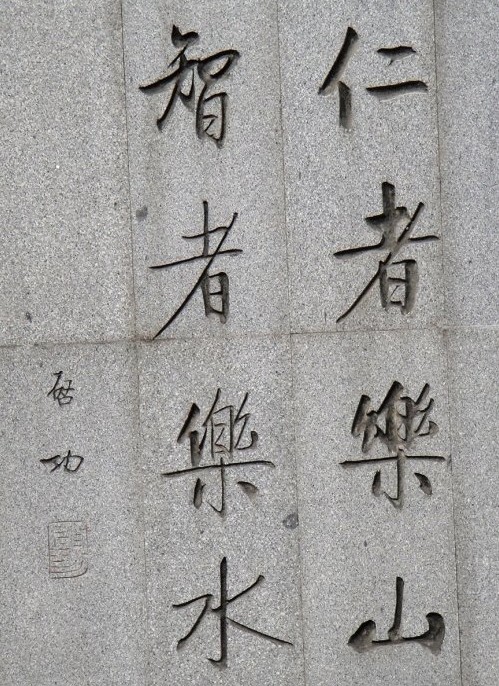 仁者樂山
智者樂水
啓功